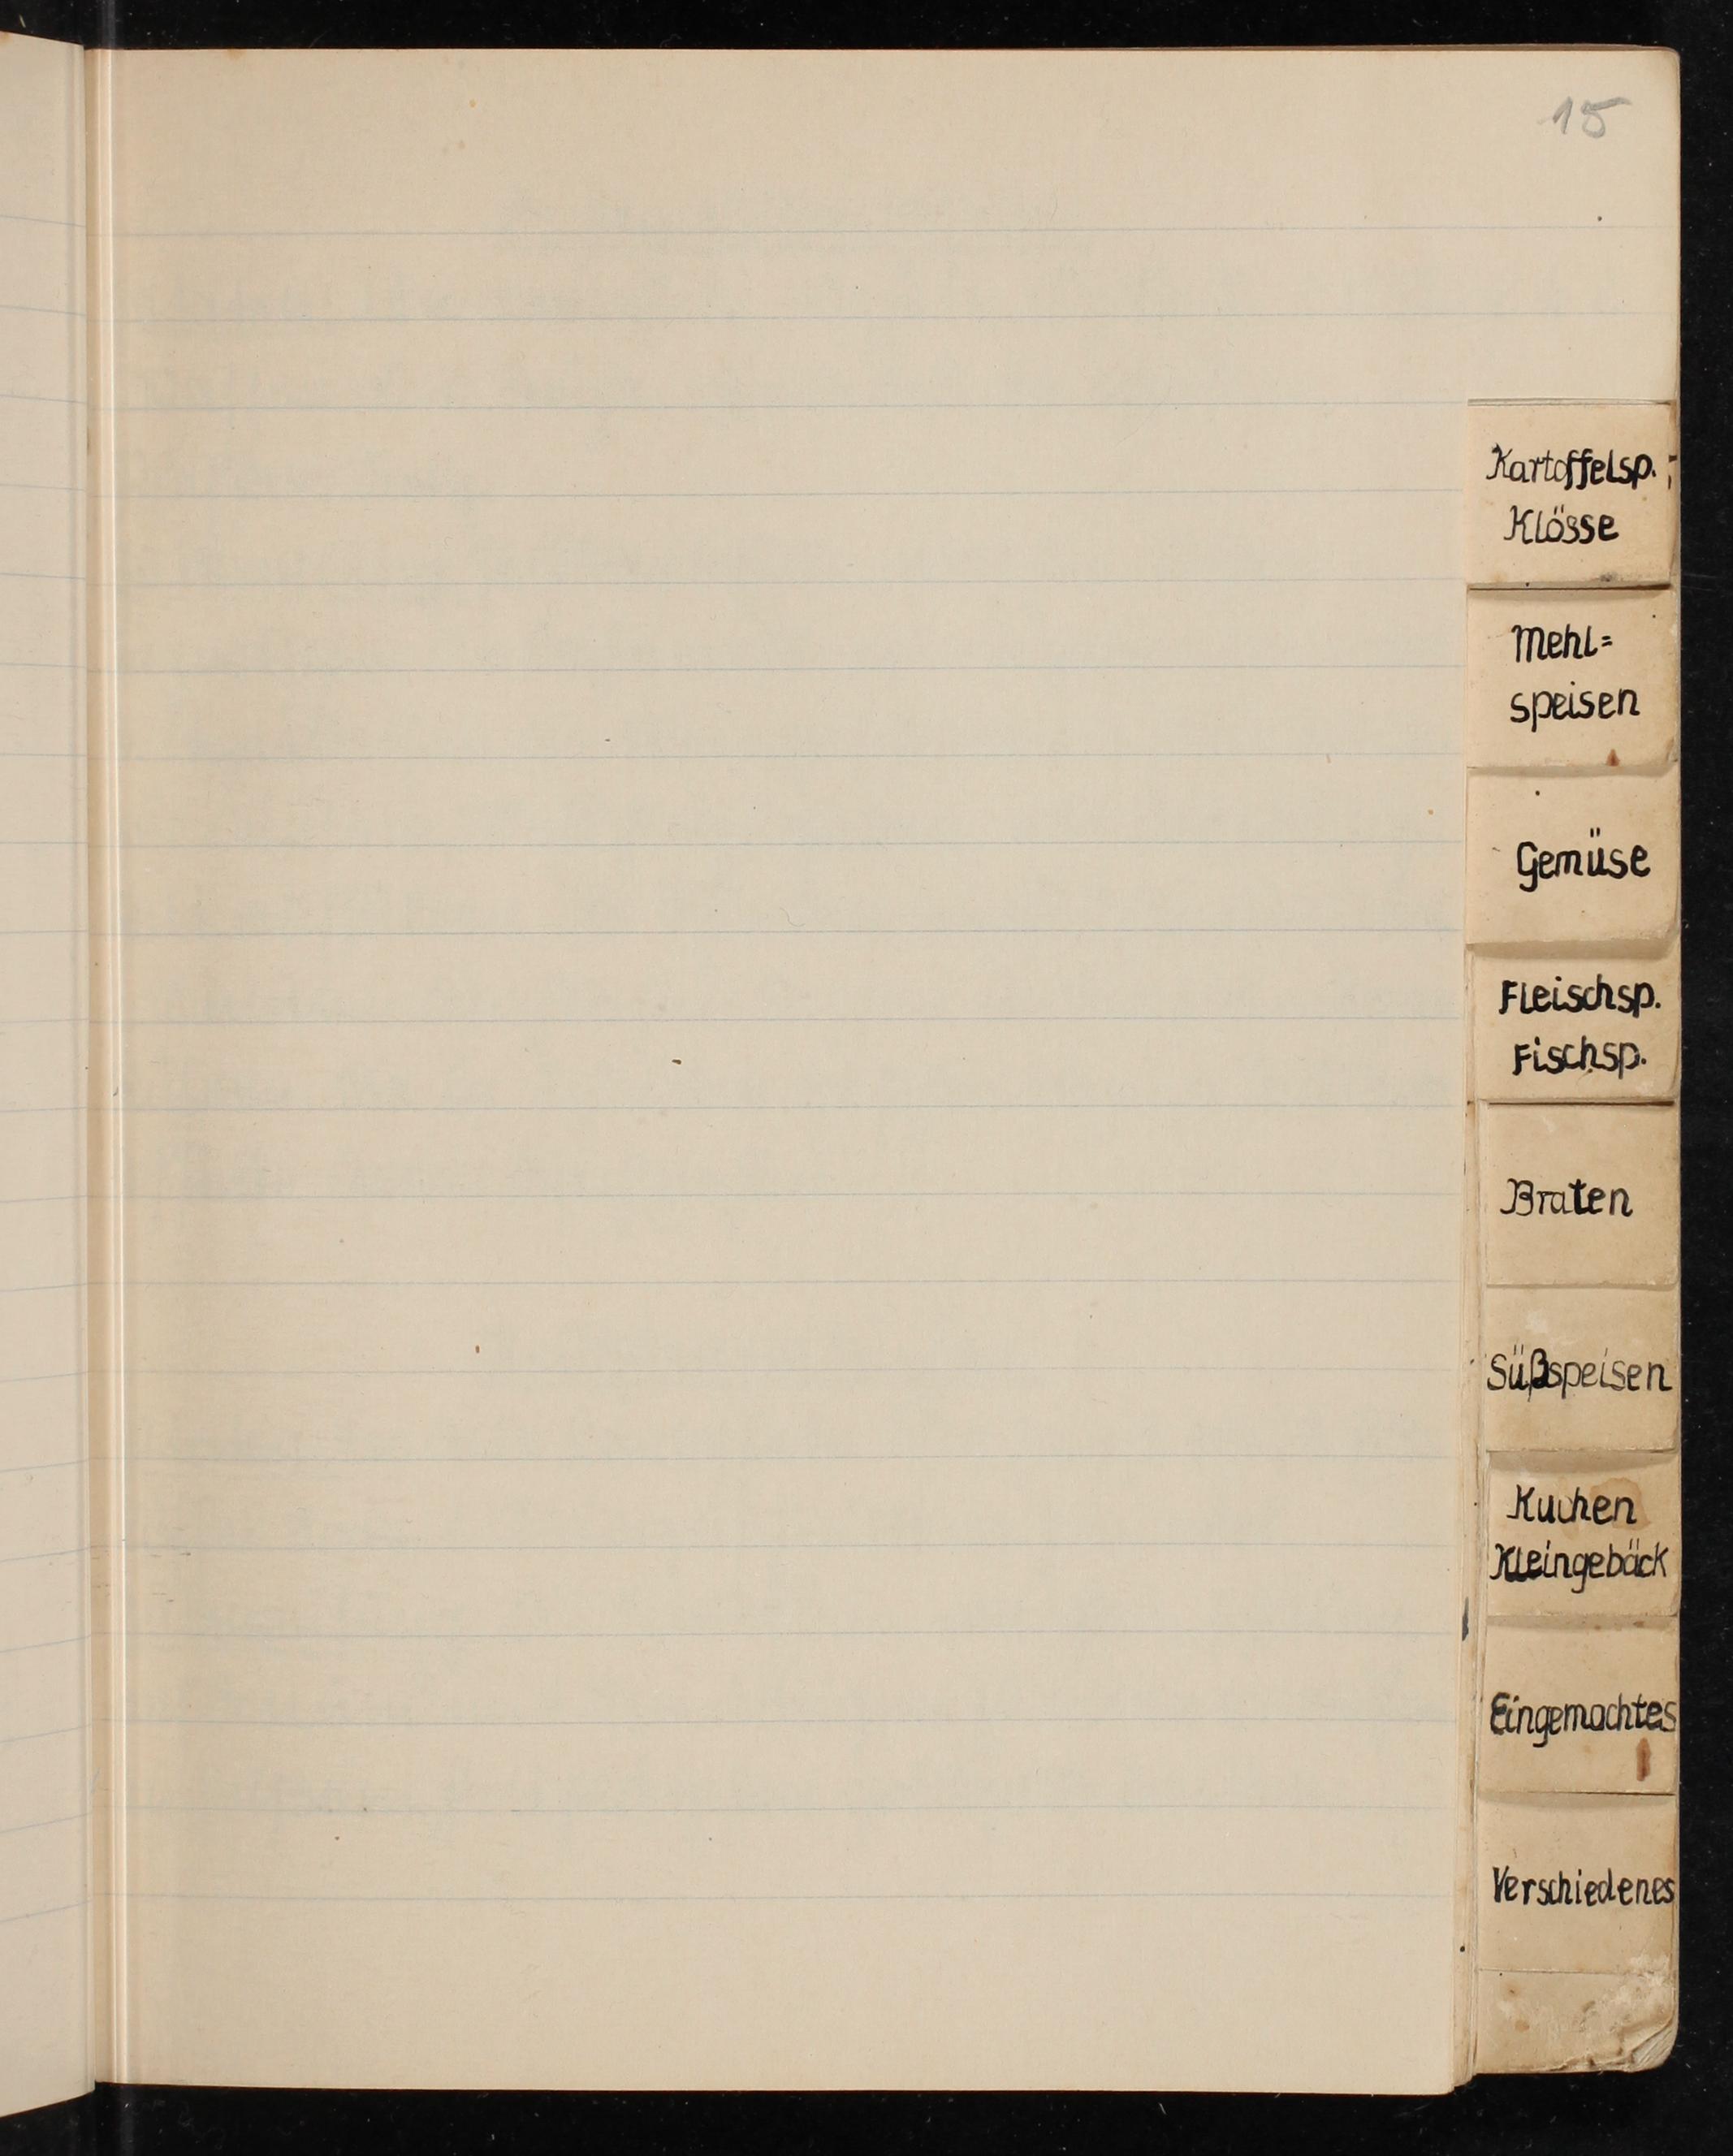 15
Kartoffelsp.
Klösse
Mehl=
speisen
Gemüse
Fleischsp.
Fischsp.
Braten
Süßspeisen
Kuchen
Kleingebäck
Eingemachtes
Verschiedenes